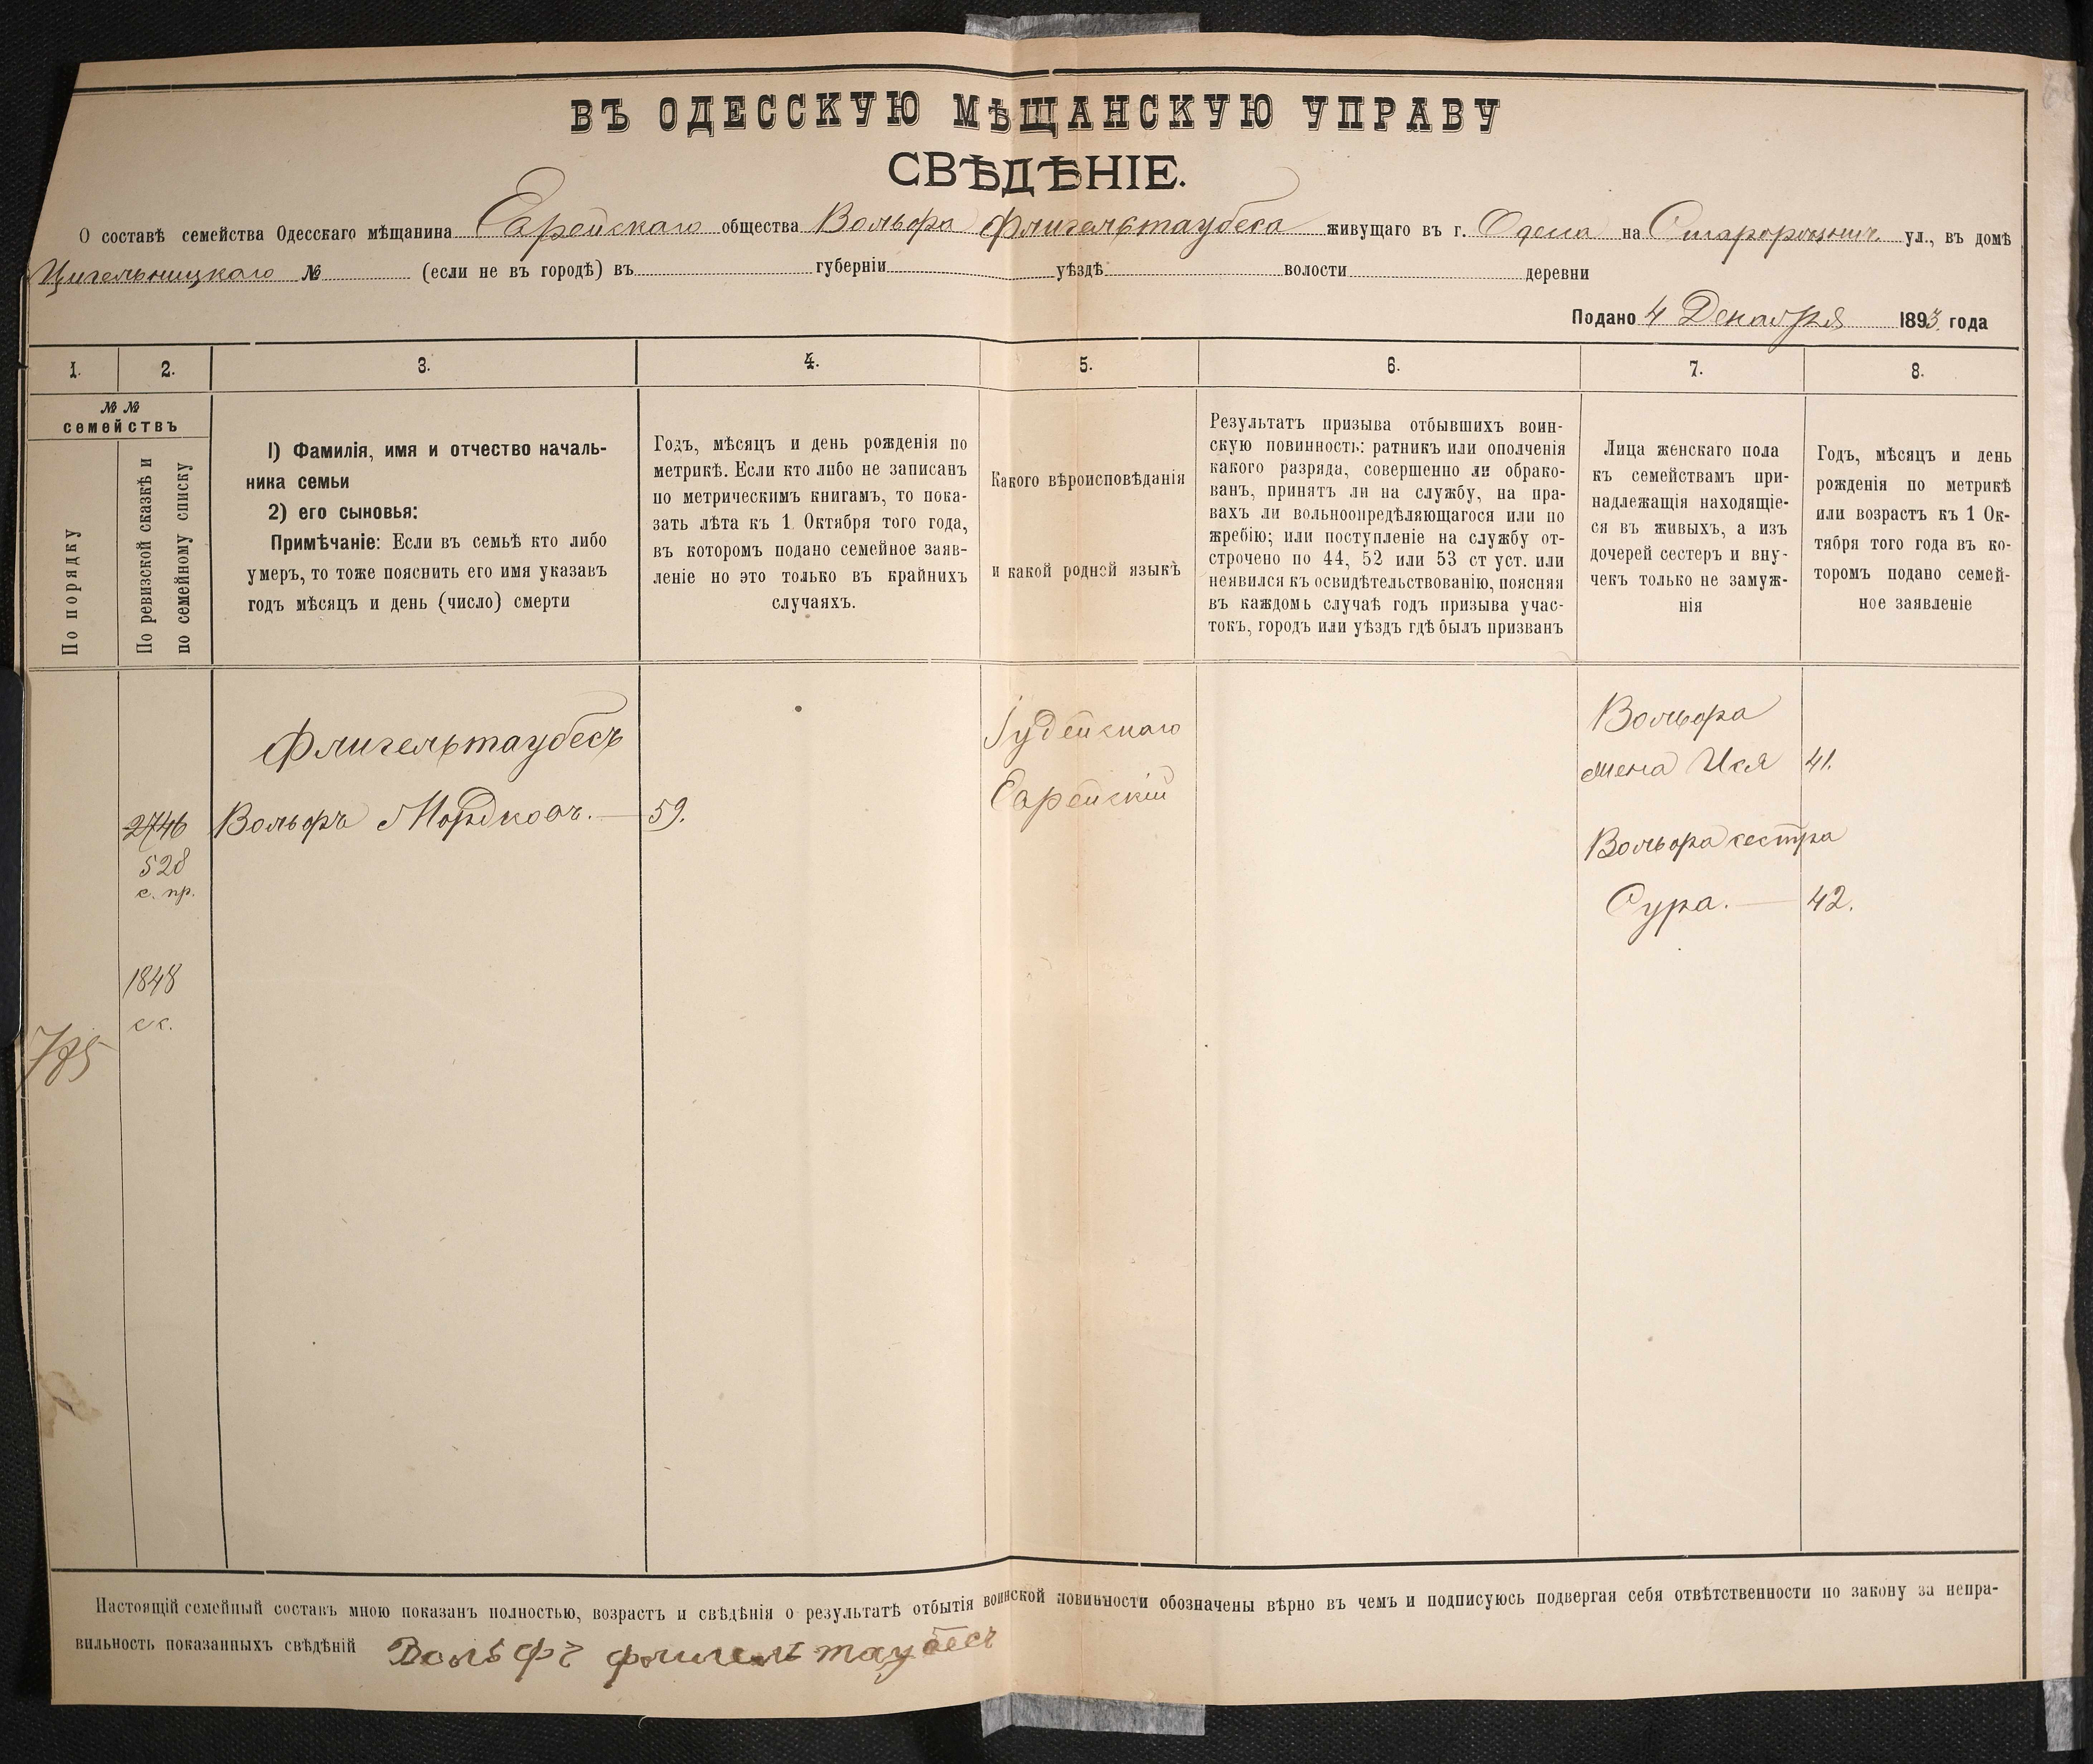 ВЪ ОДЕССКУЮ МѢЩАНСКУЮ УПРАВУ
СВѢДѢНІЕ.
О составѣ семейства Одесскаго мѣщанина Еврейскаго общества Вольфа Флигельтаубеса живущаго въ г. Одесса на ул., въ домѣ
Цигельницкаго № (если не въ городѣ) въ губерніи уѣздѣ волости деревни
Подано 4 Декабря 1893 года
1. 2. 3. 4. 5. 6. 7. 8.
№ №
семействъ
По порядку
По ревизской сказкѣ и
по семейному списку
1) Фамилія, имя и отчество началь-
ника семьи
2) его сыновья:
Примѣчаніе: Если въ семьѣ кто либо
умеръ, то тоже пояснить его имя указавъ
годъ мѣсяцъ и день (число) смерти
Годъ, мѣсяцъ и день рожденія по
метрикѣ. Если кто либо не записанъ
по метрическимъ книгамъ, то пока-
зать лѣта къ 1 Октября того года,
въ которомъ подано семейное заяв-
леніе но это только въ крайнихъ
случаяхъ.
Какого вѣроисповѣданія
и какой родной языкъ
Результатъ призыва отбывшихъ воин-
скую повинность: ратникъ или ополченія
какого разряда, совершенно ли обрако-
ванъ, принятъ ли на службу, на пра-
вахъ ли вольноопредѣляющагося или по
жребію; или поступленіе на службу от-
строчено по 44, 52 или 53 ст уст. или
неявился къ освидѣтельствованію, поясняя
въ каждомъ случаѣ годъ призыва учас-
токъ, городъ или уѣздъ гдѣ былъ призванъ
Лица женскаго пола
къ семействамъ при-
надлежащія находящіе-
ся въ живыхъ, а изъ
дочерей сестеръ и вну-
чекъ только не замуж-
нія
Годъ, мѣсяцъ и день
рожденія по метрикѣ
или возрастъ къ 1 Ок-
тября того года въ ко-
торомъ подано семей-
ное заявленіе
Флигельтаубесъ
2746 Вольфъ Мордков. — 59.
528
с. пр.
1848
с с.
Іудейскаго
Еврейскій
Вольфа
жена Ися 41.
Вольфа сестра
Сура. — 42.
Настоящій семейный составъ мною показанъ полностью, возрастъ и свѣдѣнія о результатѣ отбытія воинской повинности обозначены вѣрно въ чемъ и подписуюсь подвергая себя отвѣтственности по закону за непра-
вильность показанныхъ свѣдѣній Вольфъ